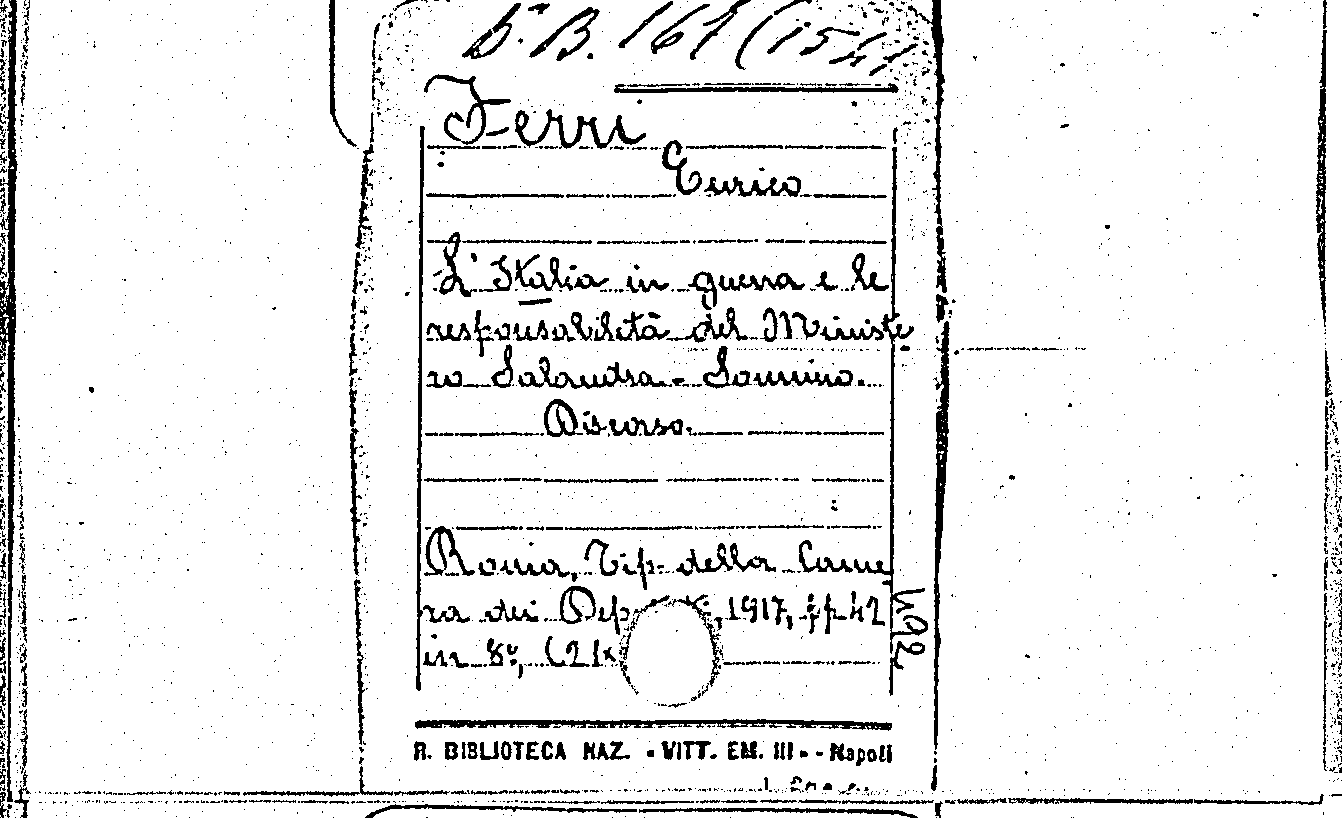 B. 167 (1541
Ferri
Enrico
L'Italia in guerra e le
responsabilità del Ministe
ro Salandra - Sonnino.
Discorso.
Roma, Tip. della Came
ra dei 1917, pp 42
in 8º, (21x
492
R. BIBLIOTECA NAZ. - VITT. EM. III - - Napoli